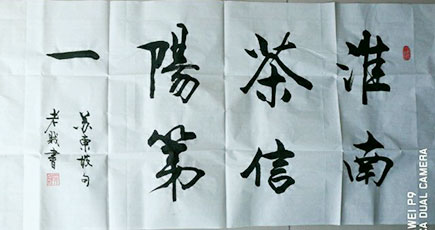 淮南
茶信
陽第
一
苏東坡句
老 書
WEI P9
CA DUAL CAMERA